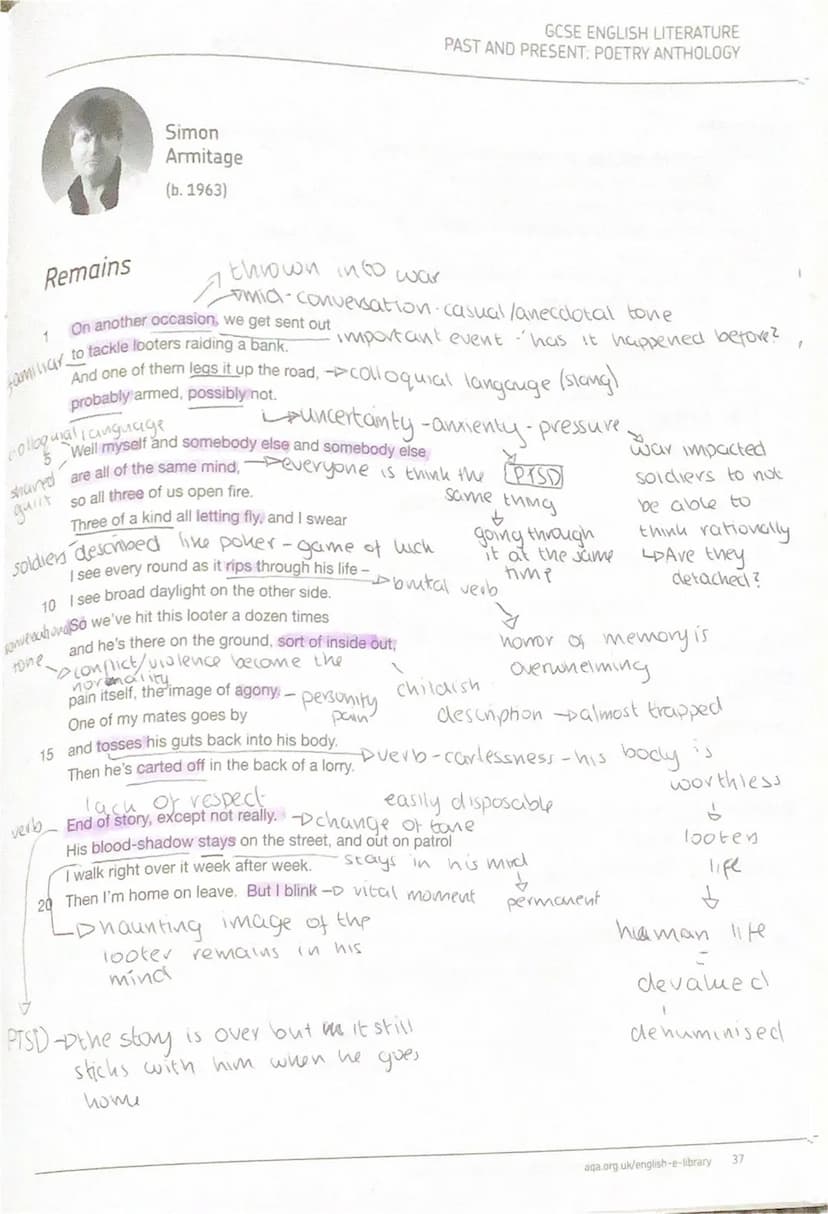 GCSE ENGLISH LITERATURE
PAST AND PRESENT: POETRY ANTHOLOGY
Simon
Armitage
(b. 1963)
Remains
thrown into war
mid-conversation-casual/anecdotal tone
1 On another occasion, we get sent out
important event - 'has it happened before?
familiar
to tackle looters raiding a bank.
And one of them legs it up the road, → colloquial langauge (slang)
probably armed, possibly not.
↳ uncertainty - anxienty - pressure
colloquial language
5 Well myself and somebody else and somebody else
are all of the same mind, → everyone is think the
same thing
↓
going through
it at the same
time
PTSD
war impacted
soldiers to not
be able to
think rationally
↳ Are they
detached?
shared
guilt
so all three of us open fire.
Three of a kind all letting fly, and I swear
soldiers described like poker - game of luck
I see every round as it rips through his life –
→ brutal verb
10 I see broad daylight on the other side.
conversational
tone
So we've hit this looter a dozen times
and he's there on the ground, sort of inside out,
horror of memory is
overwhelming
→ conflict/violence become the
normality
pain itself, the image of agony. - personify
pain
childish
description → almost trapped
One of my mates goes by
15 and tosses his guts back into his body.
→ verb - carlessness - his body is
worthless
↓
looters
life
↓
human life
=
devalued
dehuminised
Then he's carted off in the back of a lorry.
lack of respect
easily disposable
verb
End of story, except not really. → change of tone
His blood-shadow stays on the street, and out on patrol
I walk right over it week after week. stays in his mind
↓
permanent
20 Then I'm home on leave. But I blink → vital moment
→ haunting image of the
looter remains in his
mind
PTSD → the story is over but it still
sticks with him when he goes
home
aqa.org.uk/english-e-library 37